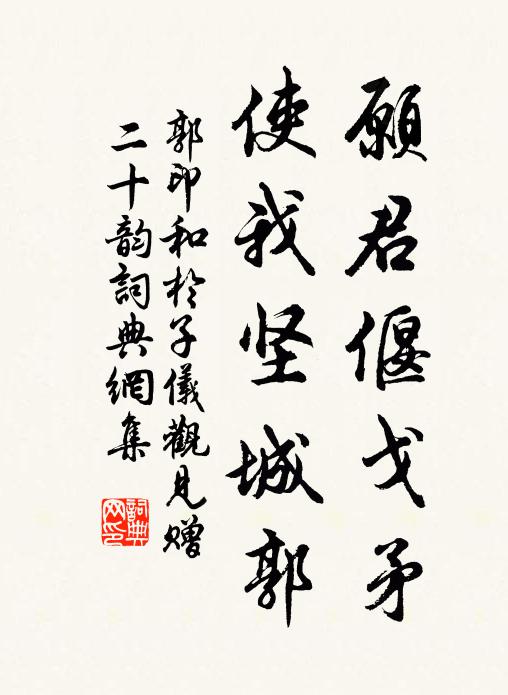 願君偃戈矛
使我坚城郭
郭印和於子儀觀見赠
二十韵詞典網集
詞典网印